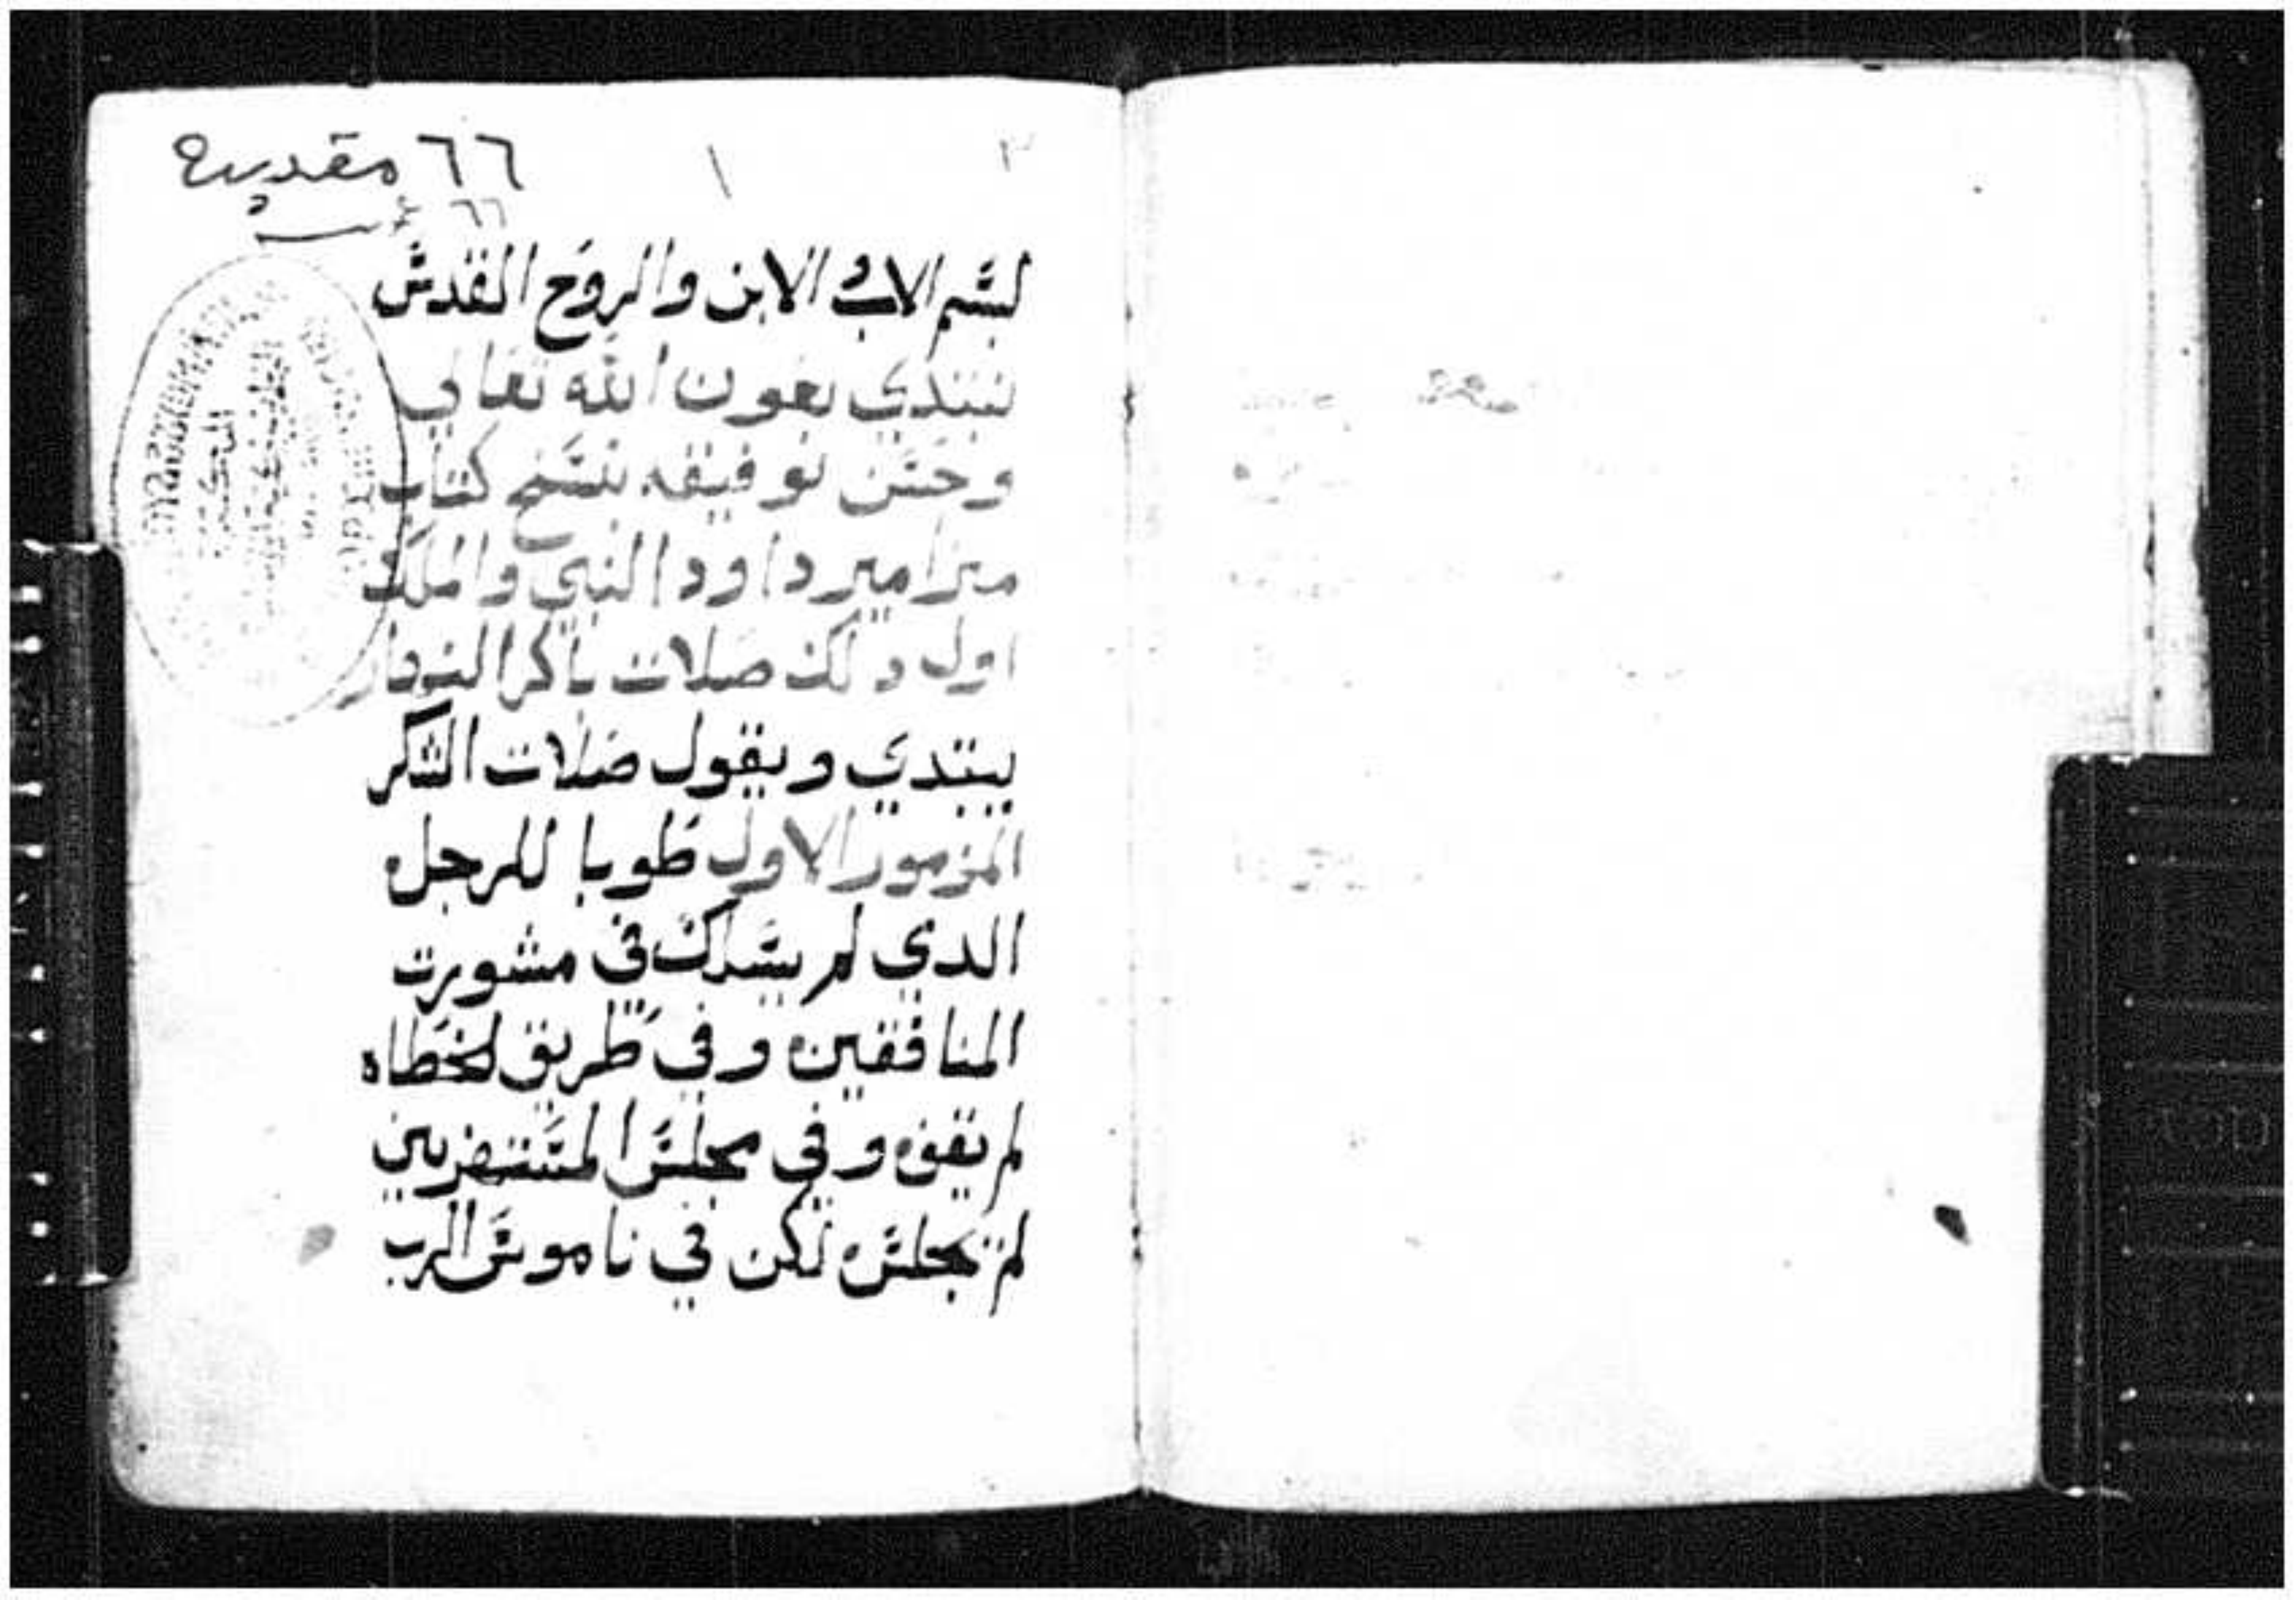 ٦٦ مقدسة
١
٦٦
بسم الاب والابن والروح القدس
نبتدي بعون الله تعالي
وحسن توفيقه بنسخ كتاب
مزامير داود النبي والملك
اول دلك صلات باكر النهار
يبتدي ويقول صلات الشكر
المزمور الاول طوبا للرجل
الدي لم يسلك في مشورت
المنافقين وفي طريق الخطاه
لم يقف وفي مجلس المستهزيين
لم يجلس لكن في ناموس الرب